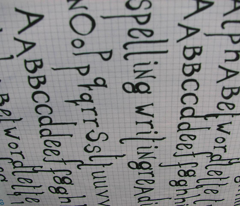 AlphABetwordlette
AABBCCddeefggh
spelling writingreadi
NOoPpqqrrSs
AABBCCddeefggh
ABetwordlette